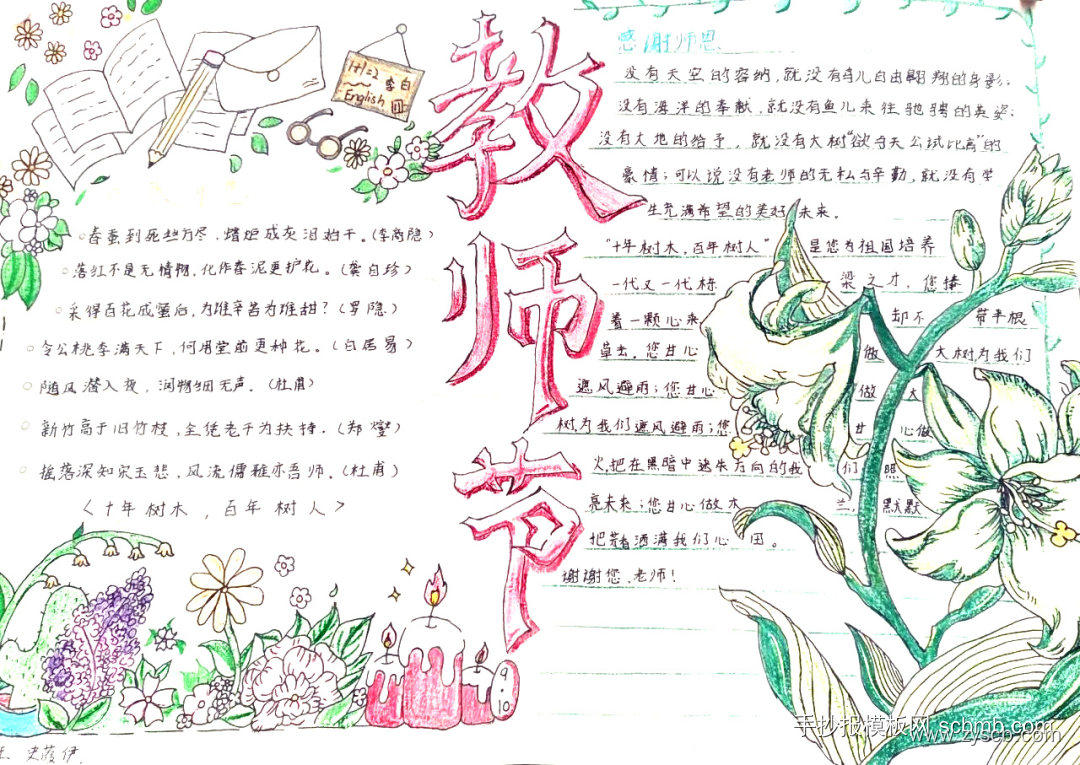 1+1=2 李白
English
教师节
春蚕到死丝方尽，蜡炬成灰泪始干。(李商隐)
落红不是无情物，化作春泥更护花。(龚自珍)
采得百花成蜜后，为谁辛苦为谁甜？(罗隐)
令公桃李满天下，何用堂前更种花。(白居易)
随风潜入夜，润物细无声。(杜甫)
新竹高于旧竹枝，全凭老干为扶持。(郑燮)
摇落深知宋玉悲，风流儒雅亦吾师。(杜甫)
〈十年树木，百年树人〉
9.10
感谢师恩
没有天空的容纳，就没有鸟儿自由翱翔的身影；
没有海洋的奉献，就没有鱼儿来往驰骋的英姿；
没有大地的给予，就没有大树“欲与天公试比高”的
豪情；可以说没有老师的无私与辛勤，就没有学
生充满希望的美好未来。
“十年树木，百年树人”是您为祖国培养
一代又一代栋梁之才，您捧
着一颗心来 却不带半根
草去。您甘心做大树为我们
遮风避雨；您甘心做大
树为我们遮风避雨；您甘心做
火把在黑暗中迷失方向的我们照
亮未来；您甘心做木兰，默默
把花香洒满我们心田。
谢谢您，老师！
手抄报模板网 scbmb.com
www.zyscb.com